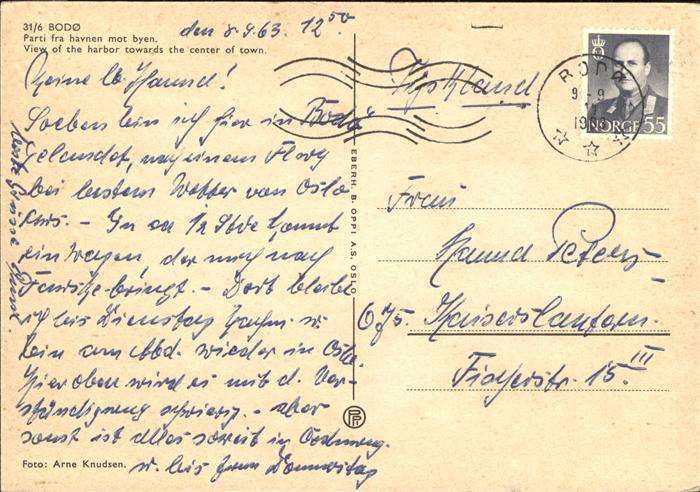 31/6 BODØ
Parti fra havnen mot byen.
View of the harbor towards the center of town.
den 8.9.63. 12⁵⁰
Meine lb. Hannel!
Soeben bin ich hier in Bodø
gelandet, nach einem Flug
bei bestem Wetter von Oslo
aus. - In ca 1/2 Stde kommt
ein Wagen der mich nach
bringt. - Dort bleibe
ich bis Dienstag Nachm. u.
bin am Abd. wieder in Oslo.
Hier oben wird es mit d. Ver-
ständigung schwierig. - aber
sonst ist alles soweit in Ordnung.
u. bis zum Donnerstag
Foto: Arne Knudsen.
EBERH. B. OPPI A.S. OSLO
Tyskland
BODØ
9 - 9
NORGE 55
Frau
Peters
675. Kaiserslautern.
Fischerstr. 15. III